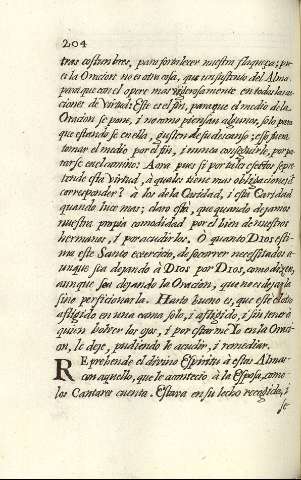 204
tras costumbres, para fortalecer nuestra flaqueza; pues
la Oracion no es otra cosa, que un sustento del Alma,
para que con el opere mas intensamente en todas las ac-
ciones de virtud: Este es el fin, para que el medio de la
Oracion se pone, i no como piensan algunas, solo para
que estando se en ella, gusten de su descanso; esso fuera
tomar el medio por el fin, i nunca conseguirle, por pa-
rarse en el camino: Aora pues si por tales efectos se pre-
tende esta virtud, à quales tiene mas obligacion
corresponder? à los de la Caridad, i esta Caridad
quando luce mas; claro està, que quando dejamos
nuestra propia comodidad por el bien de nuestros
hermanos, i por acudirlos. O quanto DIOS esti-
ma este Santo exercicio, de socorrer necessitados a-
unque sea dejando à DIOS por DIOS, como dizen,
aunque sea dejando la Oracion, que no es dejarla
sino perficionarla. Harto bueno es, que estè el otro
afligido en una cama solo, i afligido, i sin tener à
quien bolver los ojos, i por estarme Yo en la Oraci-
on, le deje, pudiendo le acudir, i remediar.
REprehende el divino Espiritu à estas Almas
con aquello, que le acontecio à la Esposa, como
los Cantares cuenta. Estava en su lecho recogida, i
se